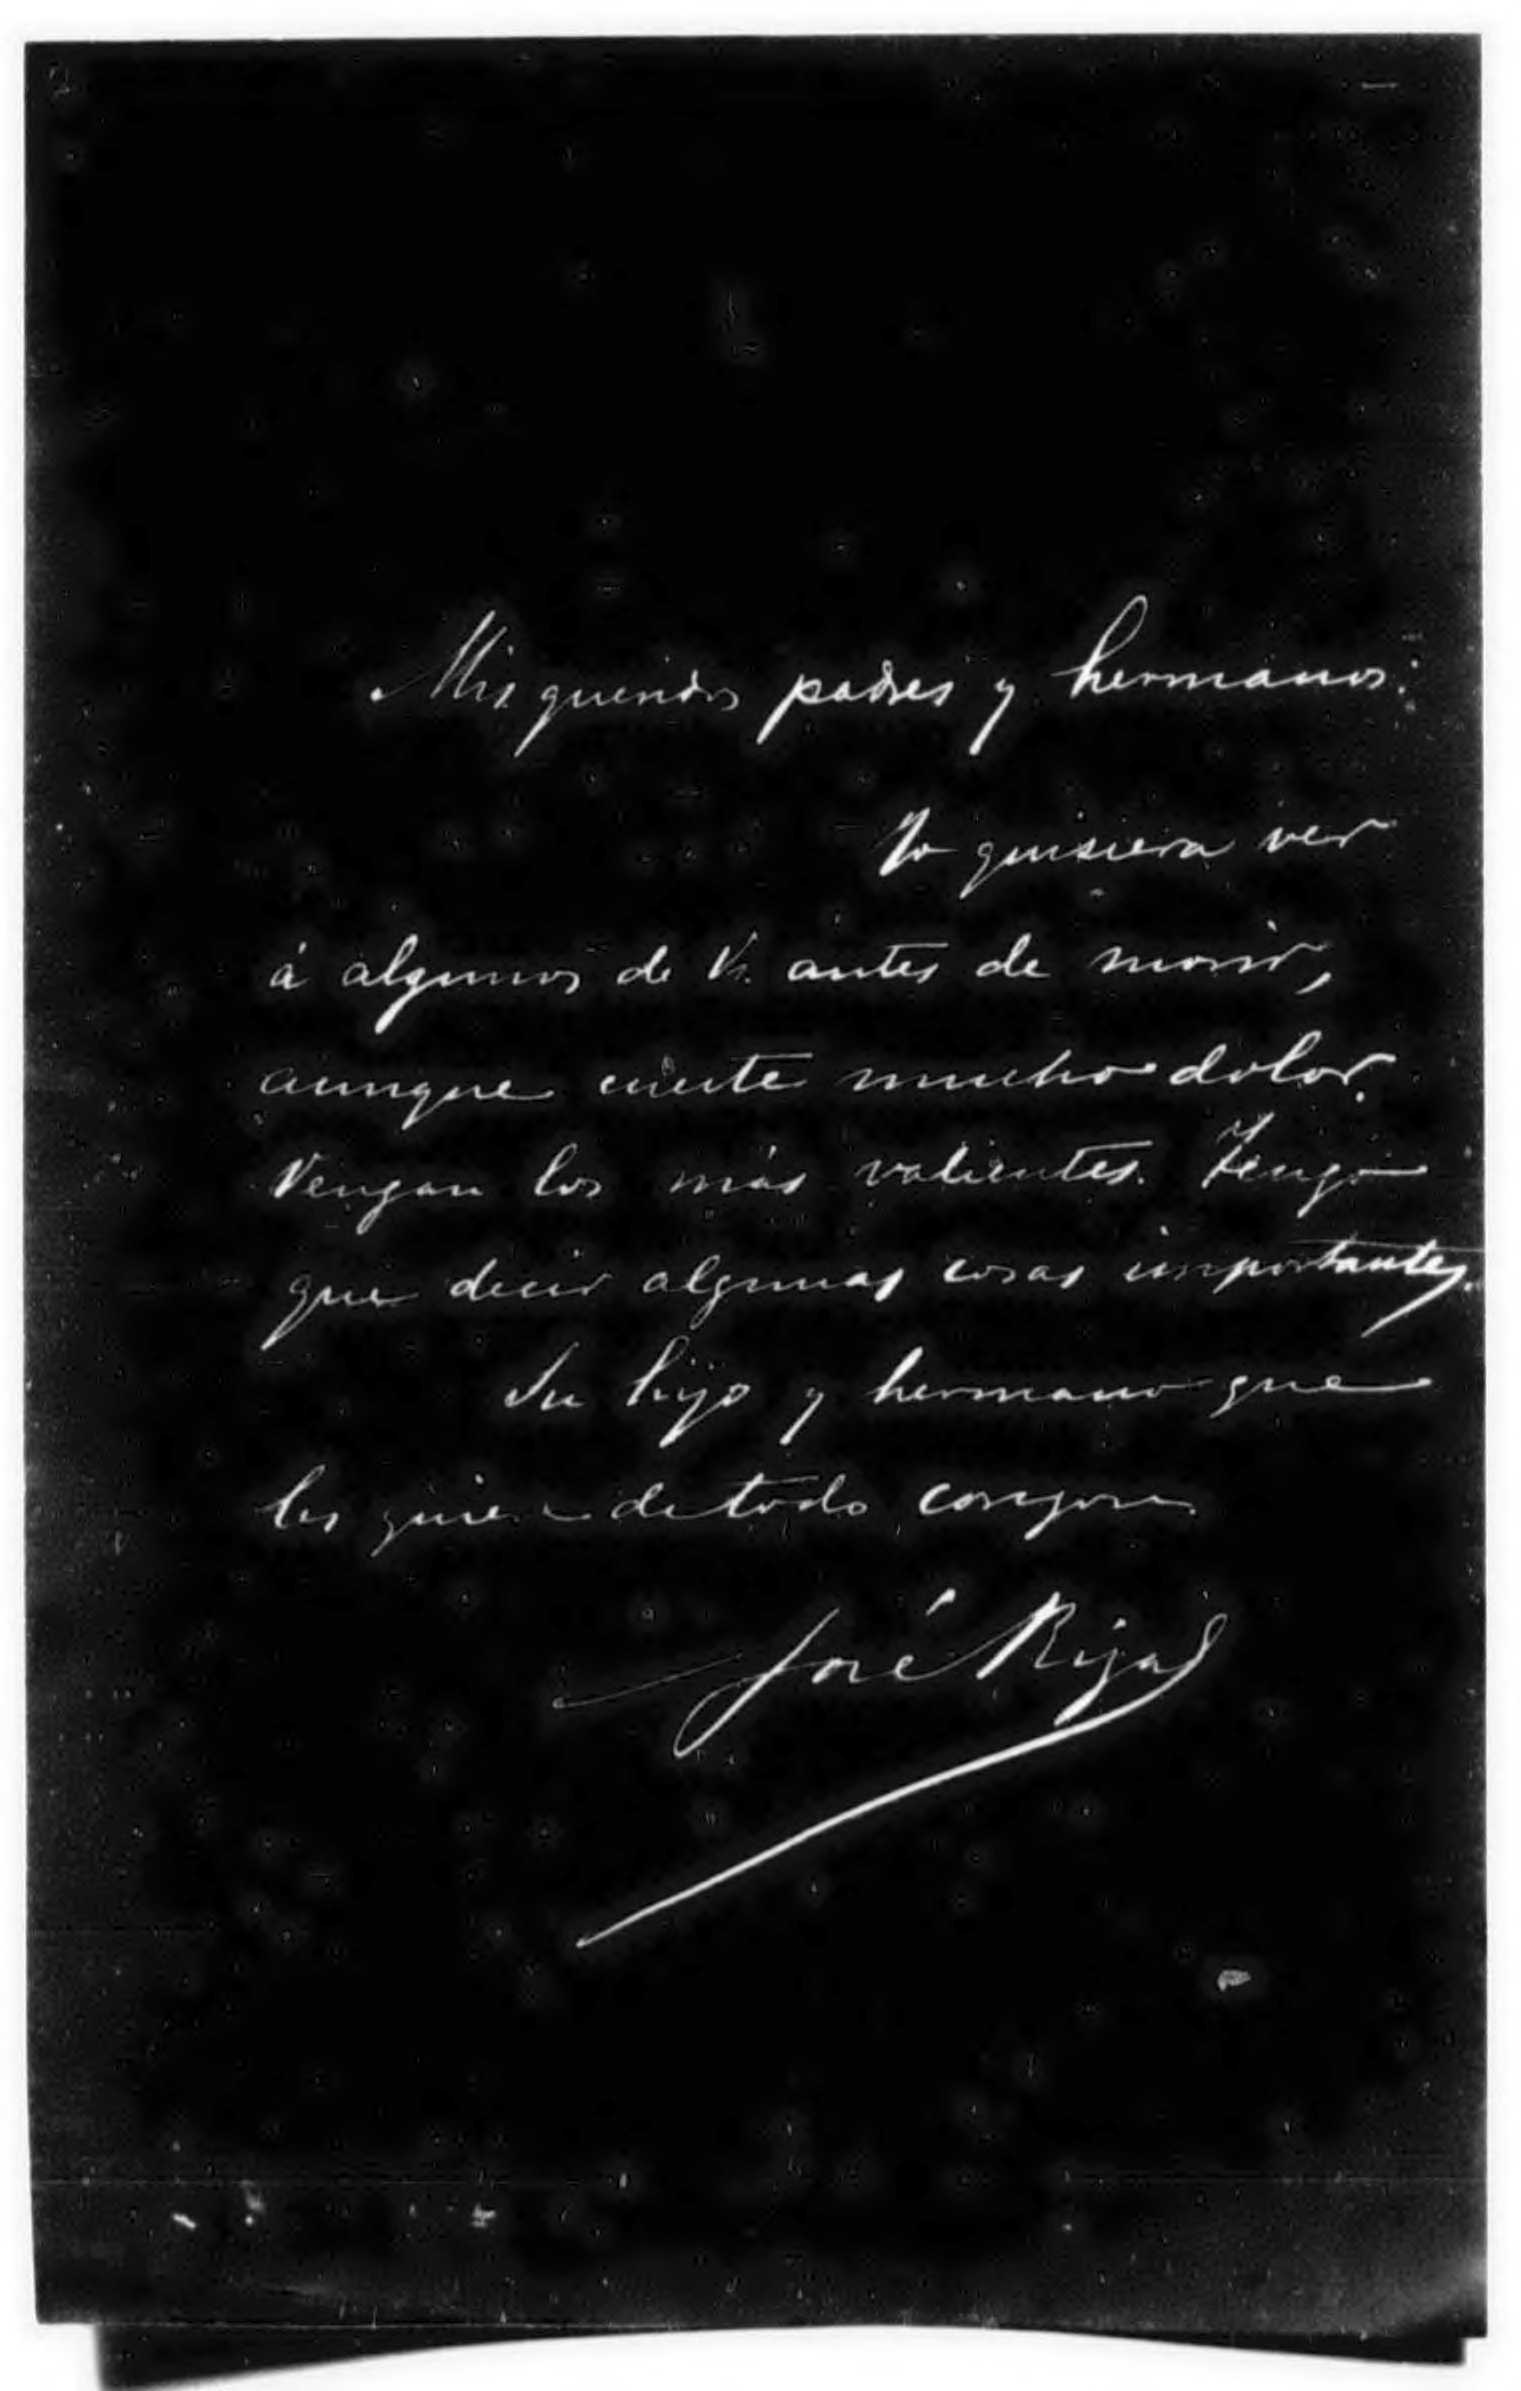 Mis queridos padres y hermanos:
Yo quisiera ver
á algunos de Vs. antes de morir,
aunque cueste mucho dolor.
Vengan los más valientes. Tengo
que decir algunas cosas importantes.
Su hijo y hermano que
les quiere de todo corazon
José Rizal